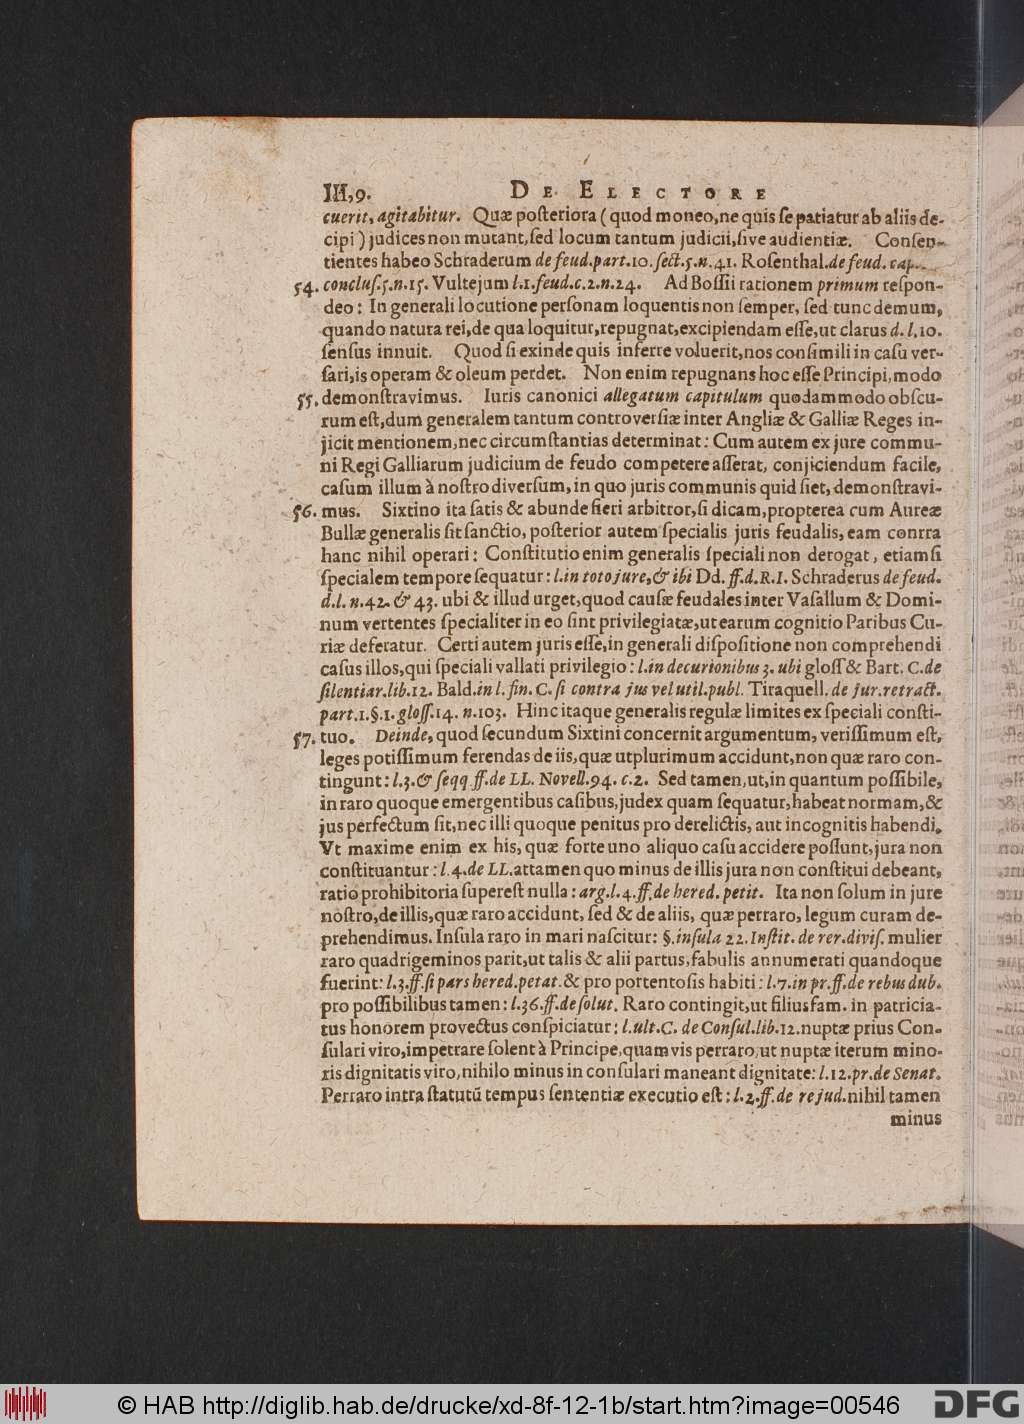 III,9. DE ELECTORE
cuerit, agitabitur. Quæ poſteriora ( quod moneo, ne quis ſe patiatur ab aliis de-
cipi ) judices non mutant, ſed locum tantum judicii, ſive audientiæ. Conſen-
tientes habeo Schraderum de feud. part. 10. ſect. 5. n. 41. Roſenthal. de feud. cap.
54. concluſ. 5. n. 15. Vultejum l. 1. feud. c. 2. n. 24. Ad Boſſii rationem primum reſpon-
deo : In generali locutione perſonam loquentis non ſemper, ſed tunc demum,
quando natura rei, de qua loquitur, repugnat, excipiendam eſſe, ut clarus d. l. 10.
ſenſus innuit. Quod ſi exinde quis inferre voluerit, nos conſimili in caſu ver-
ſari, is operam & oleum perdet. Non enim repugnans hoc eſſe Principi, modo
55. demonſtravimus. Iuris canonici allegatum capitulum quodammodo obſcu-
rum eſt, dum generalem tantum controverſiæ inter Angliæ & Galliæ Reges in-
jicit mentionem, nec circumſtantias determinat : Cum autem ex jure commu-
ni Regi Galliarum judicium de feudo competere aſſerat, conjiciendum facile,
caſum illum à noſtro diverſum, in quo juris communis quid ſiet, demonſtravi-
56. mus. Sixtino ita ſatis & abunde fieri arbitror, ſi dicam, propterea cum Aureæ
Bullæ generalis ſit ſanctio, poſterior autem ſpecialis juris feudalis, eam contra
hanc nihil operari : Conſtitutio enim generalis ſpeciali non derogat, etiamſi
ſpecialem tempore ſequatur : l. in toto jure, & ibi Dd. ff. d. R. I. Schraderus de feud.
d. l. n. 42. & 43. ubi & illud urget, quod cauſæ feudales inter Vaſallum & Domi-
num vertentes ſpecialiter in eo ſint privilegiatæ, ut earum cognitio Paribus Cu-
riæ deferatur. Certi autem juris eſſe, in generali diſpoſitione non comprehendi
caſus illos, qui ſpeciali vallati privilegio : l. in decurionibus 3. ubi gloſſ & Bart. C. de
ſilentiar. lib. 12. Bald. in l. fin. C. ſi contra jus vel util. publ. Tiraquell. de jur. retract.
part. 1. §. 1. gloſſ. 14. n. 103. Hinc itaque generalis regulæ limites ex ſpeciali conſti-
57. tuo. Deinde, quod ſecundum Sixtini concernit argumentum, veriſſimum eſt,
leges potiſſimum ferendas de iis, quæ utplurimum accidunt, non quæ raro con-
tingunt : l. 3. & ſeqq. ff. de LL. Novell. 94. c. 2. Sed tamen, ut, in quantum poſſibile,
in raro quoque emergentibus caſibus, judex quam ſequatur, habeat normam, &
jus perfectum ſit, nec illi quoque penitus pro derelictis, aut incognitis habendi.
Vt maxime enim ex his, quæ forte uno aliquo caſu accidere poſſunt, jura non
conſtituantur : l. 4. de LL. attamen quo minus de illis jura non conſtitui debeant,
ratio prohibitoria ſupereſt nulla : arg. l. 4. ff. de hered. petit. Ita non ſolum in jure
noſtro, de illis, quæ raro accidunt, ſed & de aliis, quæ perraro, legum curam de-
prehendimus. Inſula raro in mari naſcitur : §. inſula 22. Inſtit. de rer. diviſ. mulier
raro quadrigeminos parit, ut talis & alii partus, fabulis annumerati quandoque
fuerint : l. 3. ff. ſi pars hered. petat. & pro portentoſis habiti : l. 7. in pr. ff. de rebus dub.
pro poſſibilibus tamen : l. 36. ff. de ſolut. Raro contingit, ut filiusfam. in patricia-
tus honorem provectus conſpiciatur : l. ult. C. de Conſul. lib. 12. nuptæ prius Con-
ſulari viro, impetrare ſolent à Principe, quamvis perraro, ut nuptæ iterum mino-
ris dignitatis viro, nihilo minus in conſulari maneant dignitate : l. 12. pr. de Senat.
Perraro intra ſtatutū tempus ſententiæ executio eſt : l. 2. ff. de re jud. nihil tamen
minus
© HAB http://diglib.hab.de/drucke/xd-8f-12-1b/start.htm?image=00546 DFG